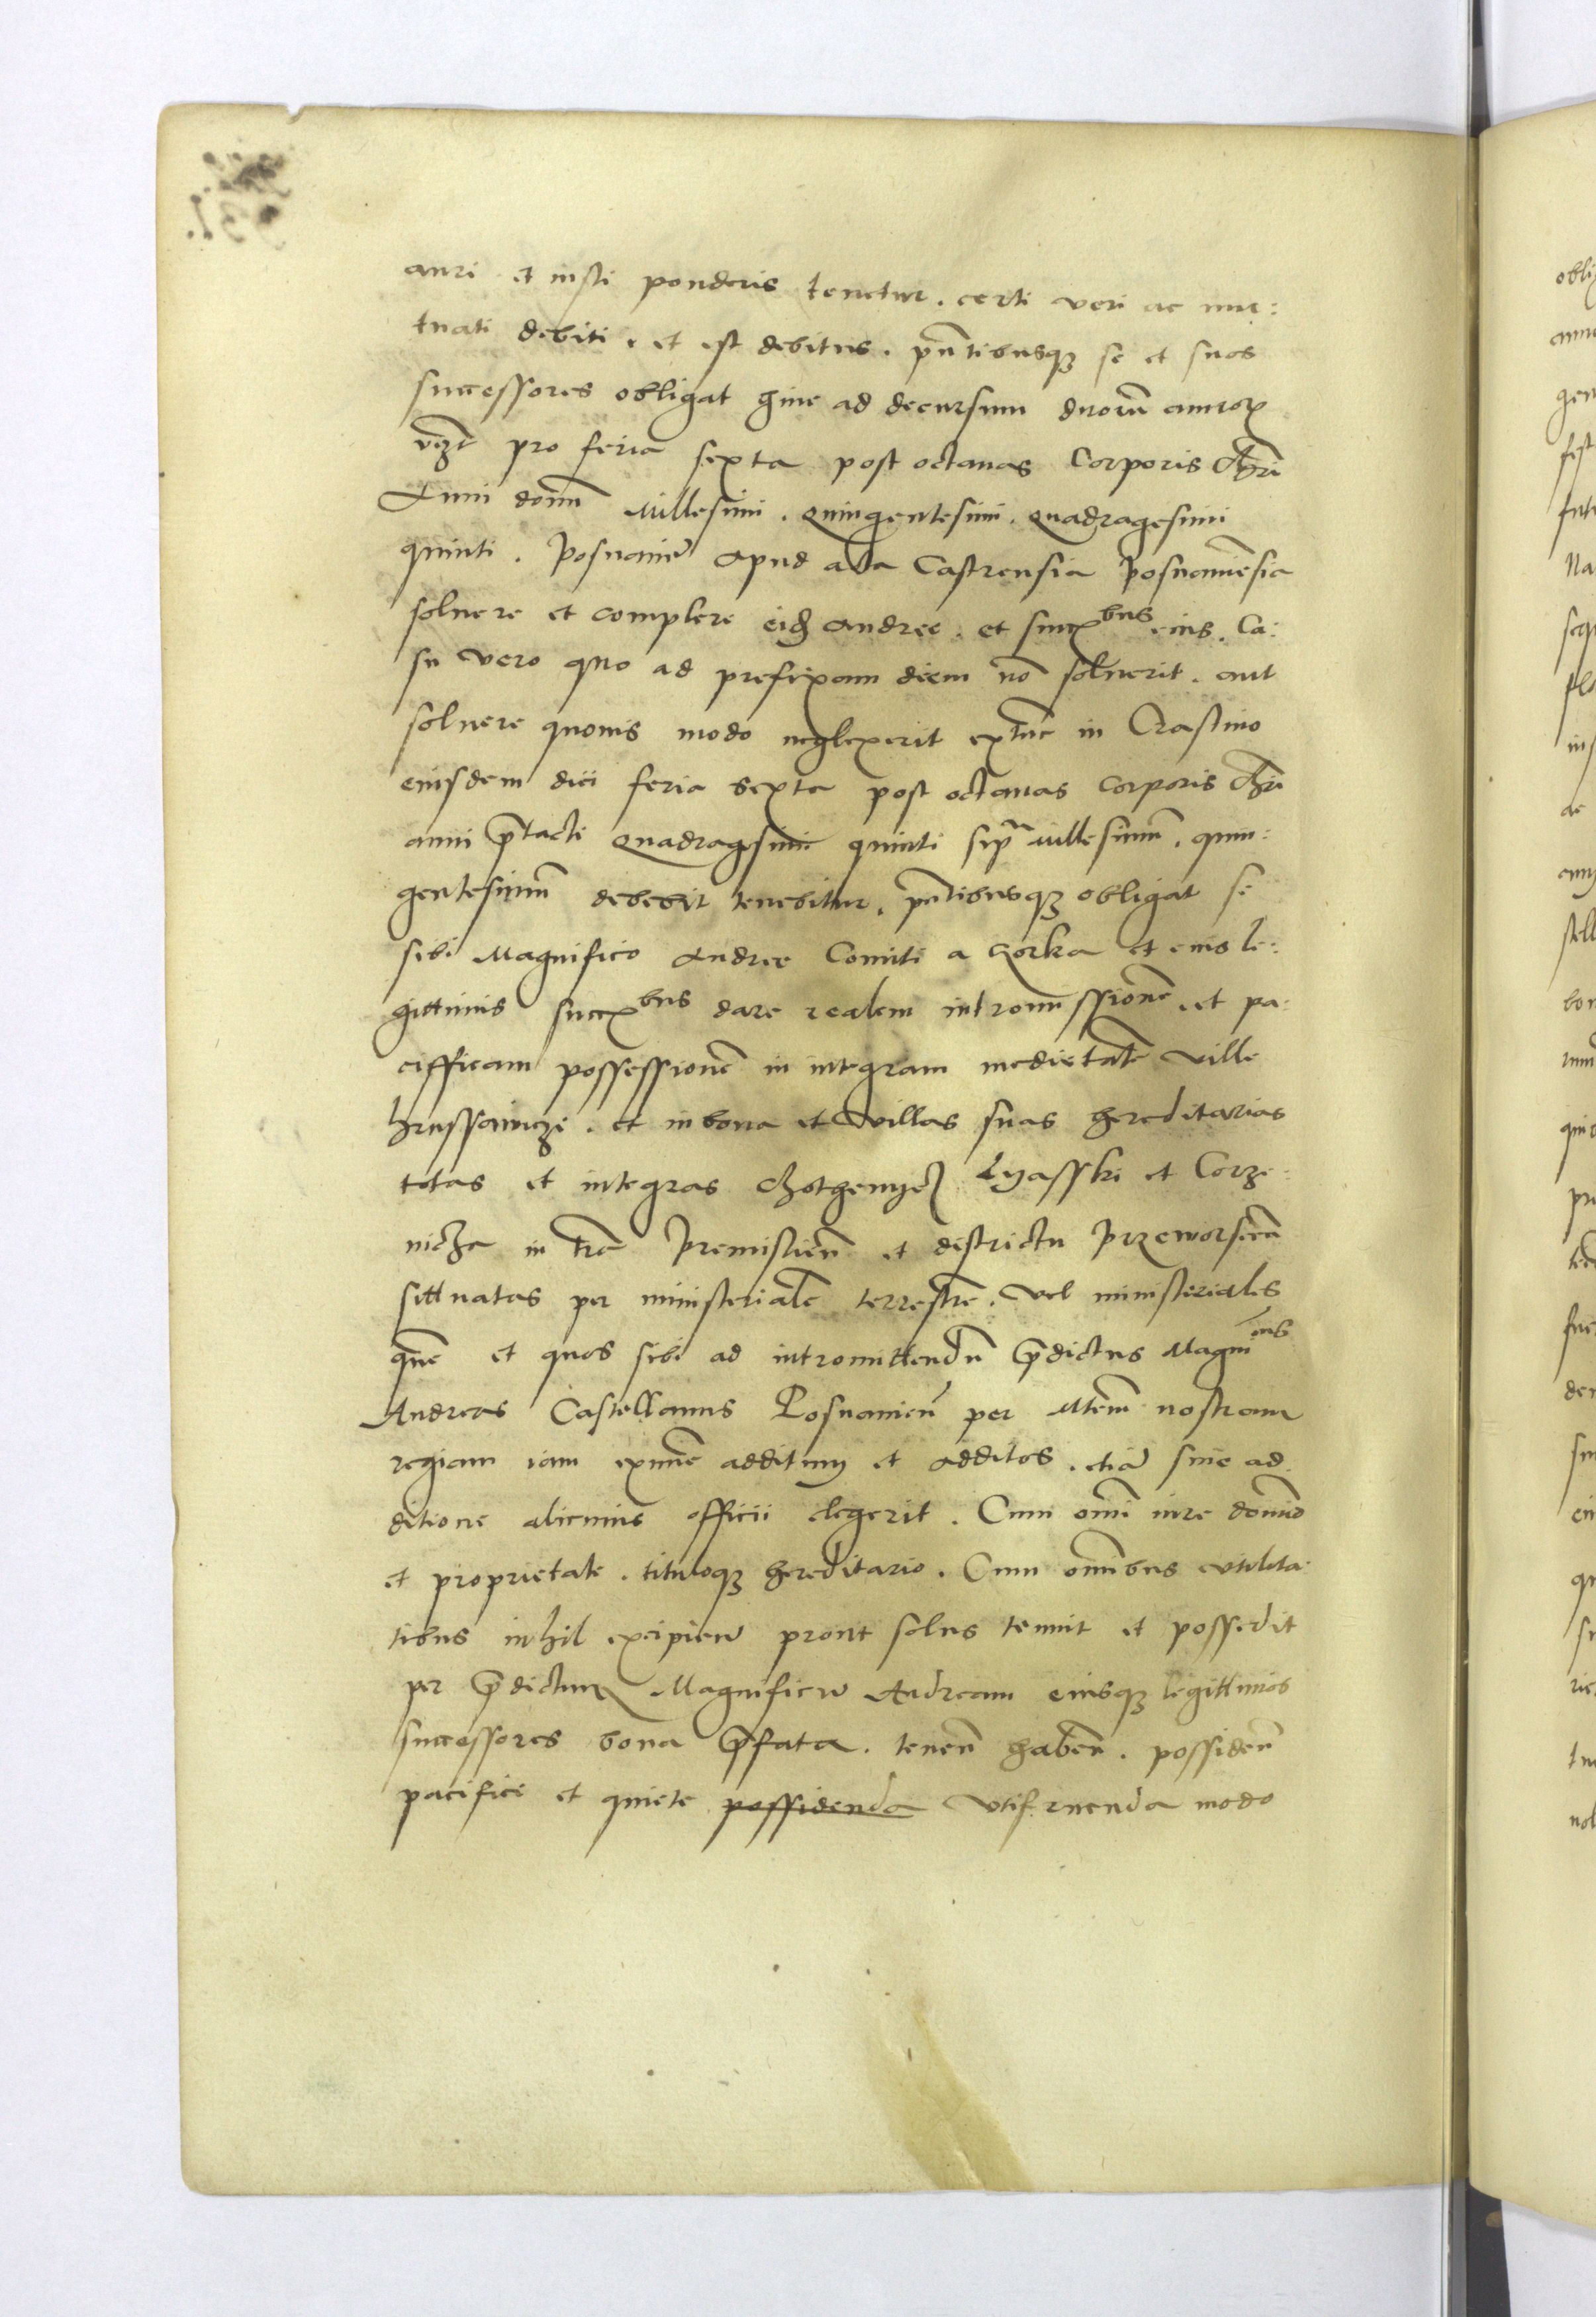 auri et iusti ponderis tenetur. certi veri ac mu:
tuati debiti. et est debitus. pñtibusqz se et suos
successores obligat hinc ad decursum duorũ annorꝝ
vꝫt pro feria sexta post octauas Corporis Chrĩ
Anni domĩ Millesimi. Quingentesimi. Quadragesimi
quinti. Posnanie Apud acta Castrensia Posnanieñsia
soluere et complere eidꝫ Andree. et succꝝbus eius. Ca:
su vero quo ad prefixam diem nõ soluerit. aut
soluere quouis modo neglexerit extũc in Crastino
eiusdem diei feria sexta post octauas Corporis Chrĩ
anni p̃tacti Quadragesimi quinti supᵃ Millesimũ. quin:
gentesimũ debebit tenebitur. pñtibusqz obligat se
sibi Magnifico Andree Comiti a Gorka et eius le:
gittimis succꝝbus dare realem intromissionẽ. et pa:
cifficam possessionẽ in integram medietatẽ ville
hrussowicze. et in bona et villas suas hereditarias
totas et integras Chothenyecz Lyasski et Corze:
nicza in trã Premislieñ et districtu Przeworsceñ
sittuatas per ministerialẽ terrestrẽ. vel ministeriales
quẽ et quos sibi ad intromittendũ p̃dictus Magnicus
Andreas Castellanus Posnanieñ per Mtẽm nostram
regiam iam exnũc additum et additos. etiã sine ad:
ditione alicuius officii elegerit. Cum om̃i iure domĩo
et proprietate. tituloqz hereditario. Cum om̃ibus vtilita:
tibus nihil excipieñ prout solus tenuit et possedit
per p̃dictum Magnificũ Andream eiusqz legittimos
successores bona p̃fata. teneñ habeñ. possideñ
pacifici et quiete possidenda vtifruenda modo